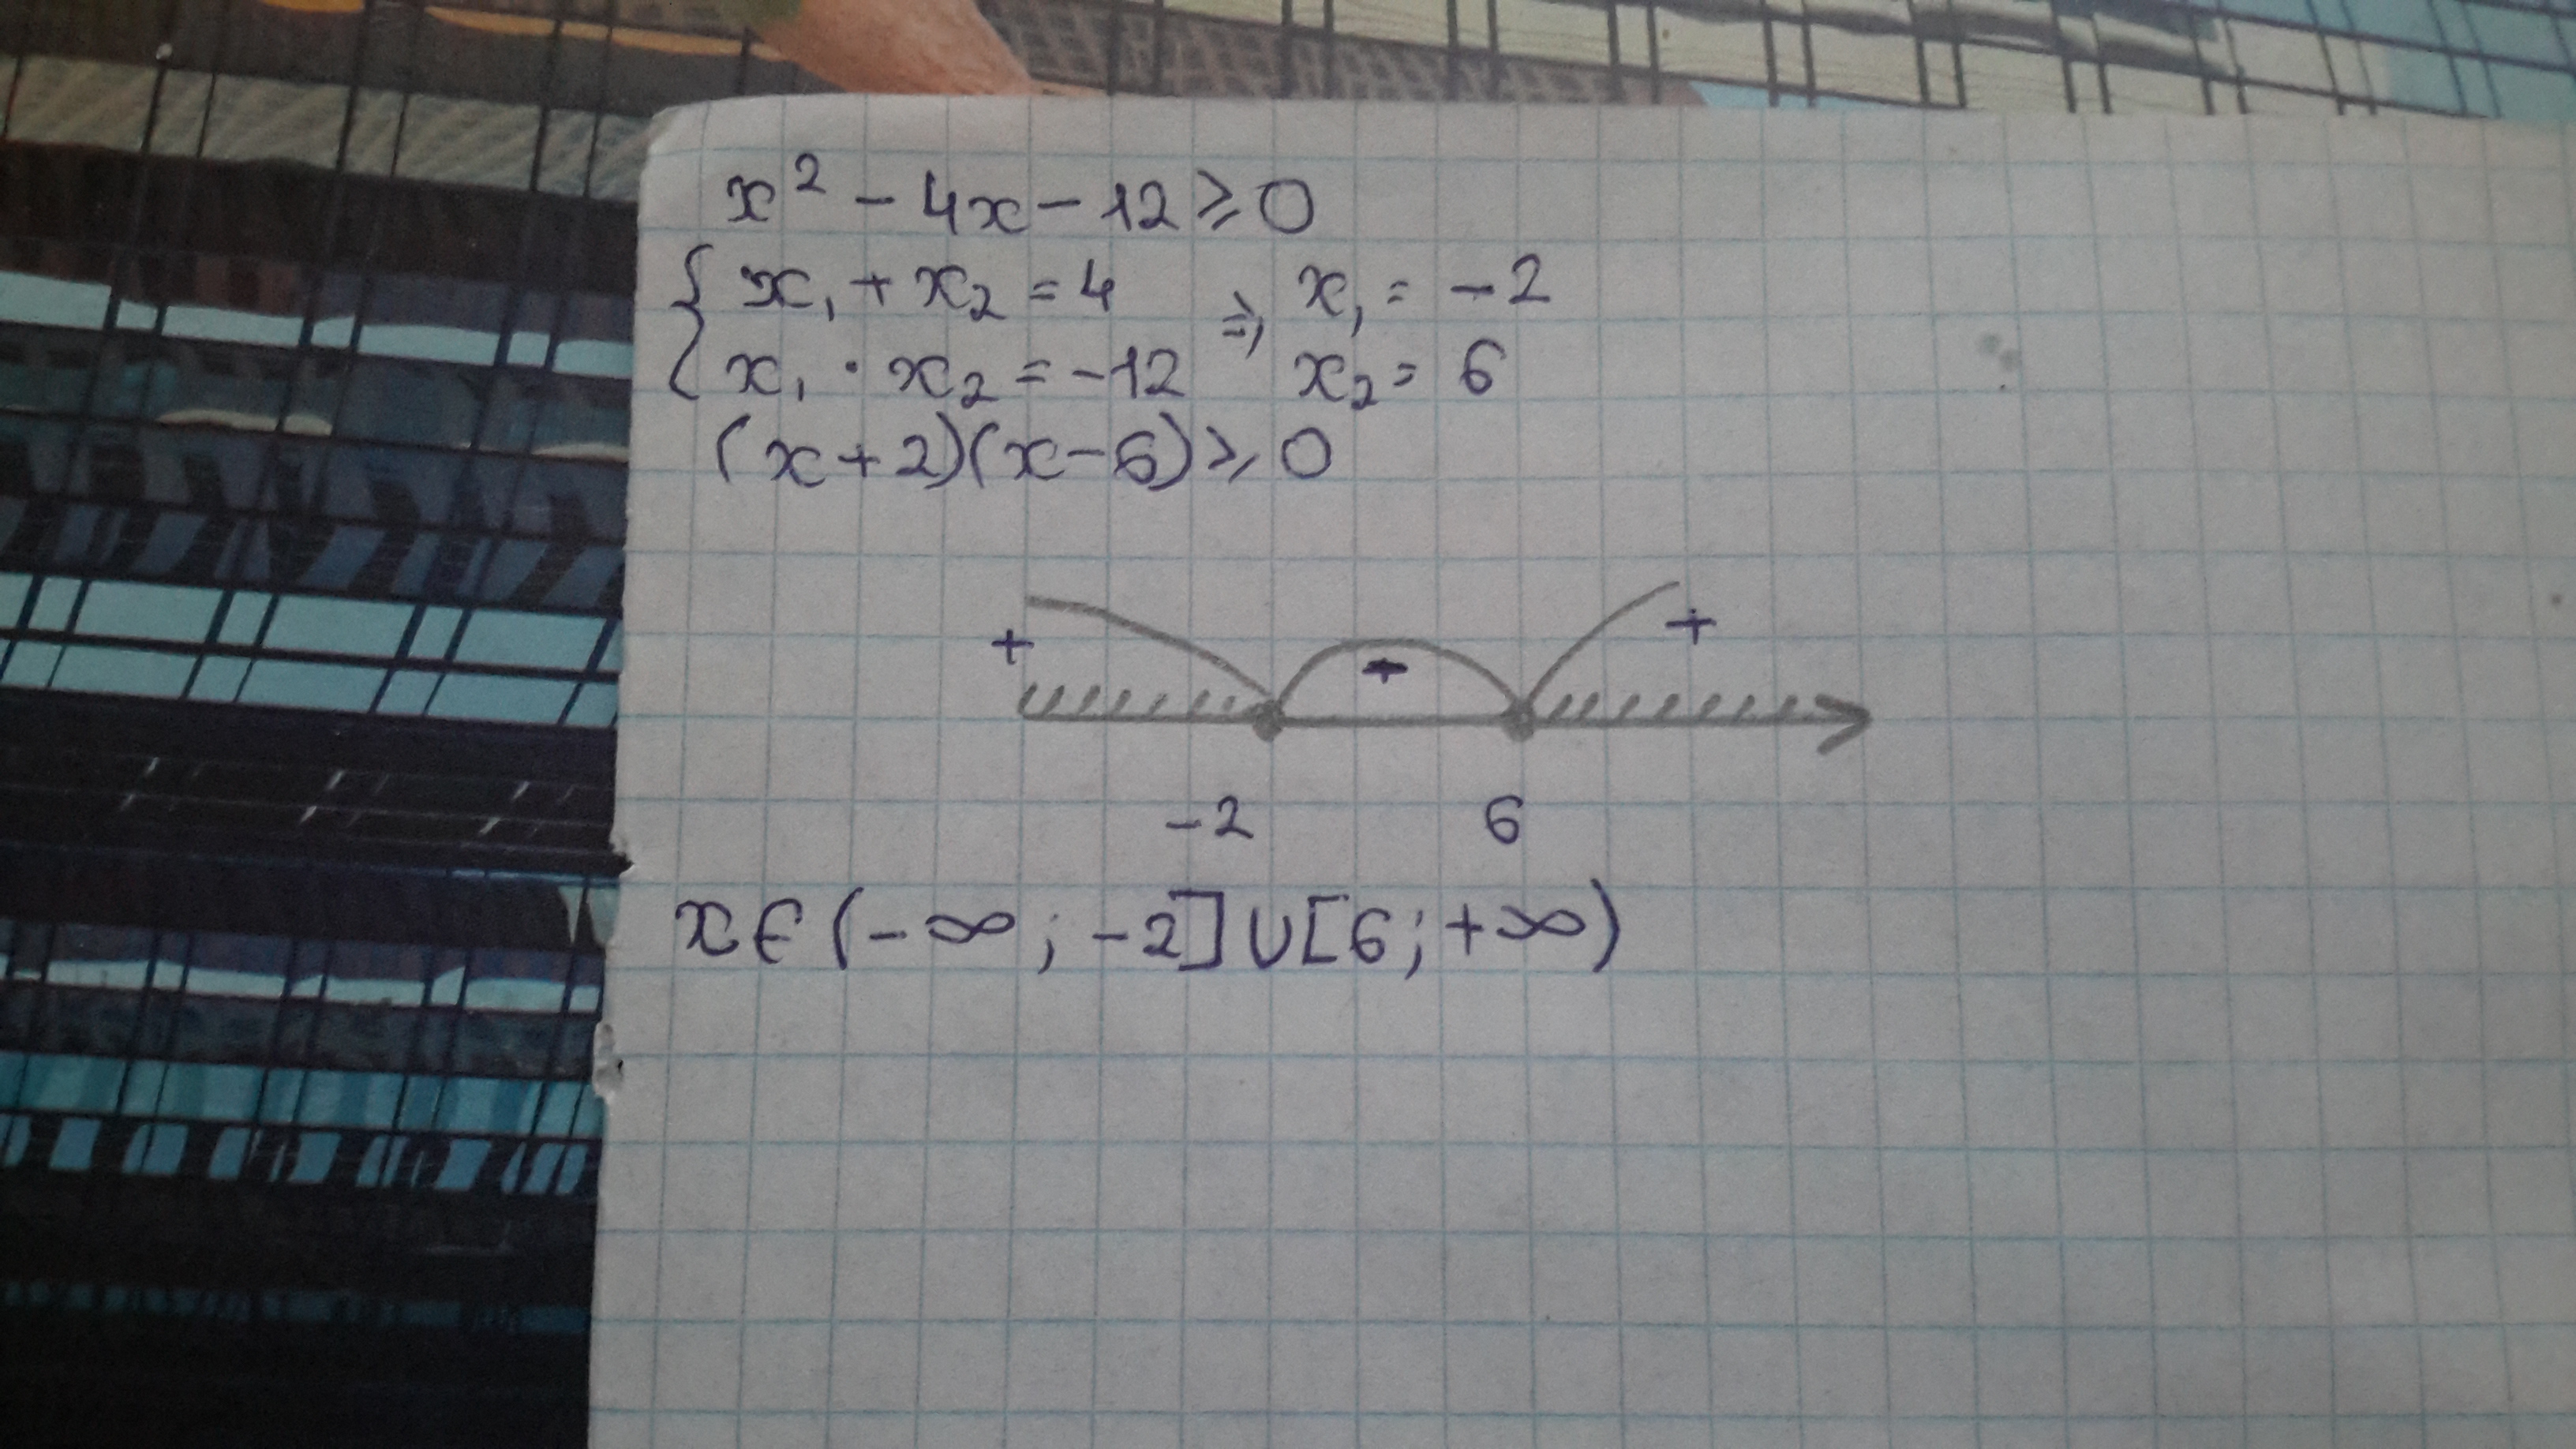 x² - 4x - 12 ⩾ 0
{ x₁ + x₂ = 4 ⇒ x₁ = -2
x₁ · x₂ = -12 x₂ = 6
(x+2)(x-6) ⩾ 0
+ - +
-2 6
x ∈ (-∞; -2] ∪ [6; +∞)